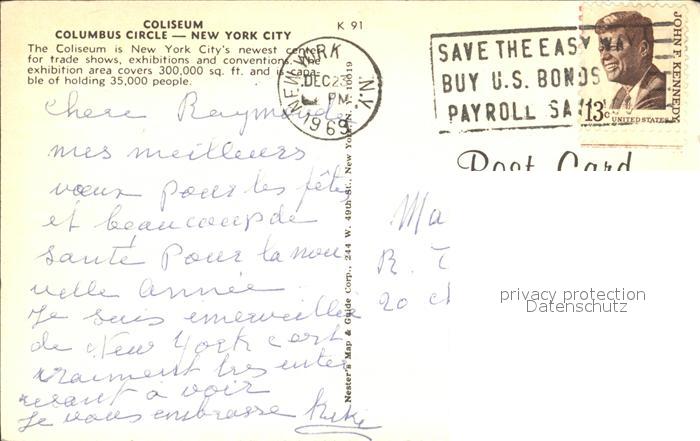 COLISEUM
COLUMBUS CIRCLE — NEW YORK CITY
K 91
The Coliseum is New York City's newest center
for trade shows, exhibitions and conventions. The
exhibition area covers 300,000 sq. ft. and is capa-
ble of holding 35,000 people.
NEW YORK N.Y.
DEC 23
PM
1969
SAVE THE EASY WAY
BUY U.S. BONDS
PAYROLL SA
JOHN F. KENNEDY
13c
UNITED STATES
Post Card
Nester's Map & Guide Corp., 244 W. 49th St., New York, N.Y. 10019
Chere Raymonde
mes meilleurs
vœux pour les fêtes
et beaucoup de
santé pour la nou
velle année.
Je suis emerveillée
de New York c'est
vraiment très inter
essant a voir
Je vous embrasse Kiki
Ma
R.
20
privacy protection
Datenschutz